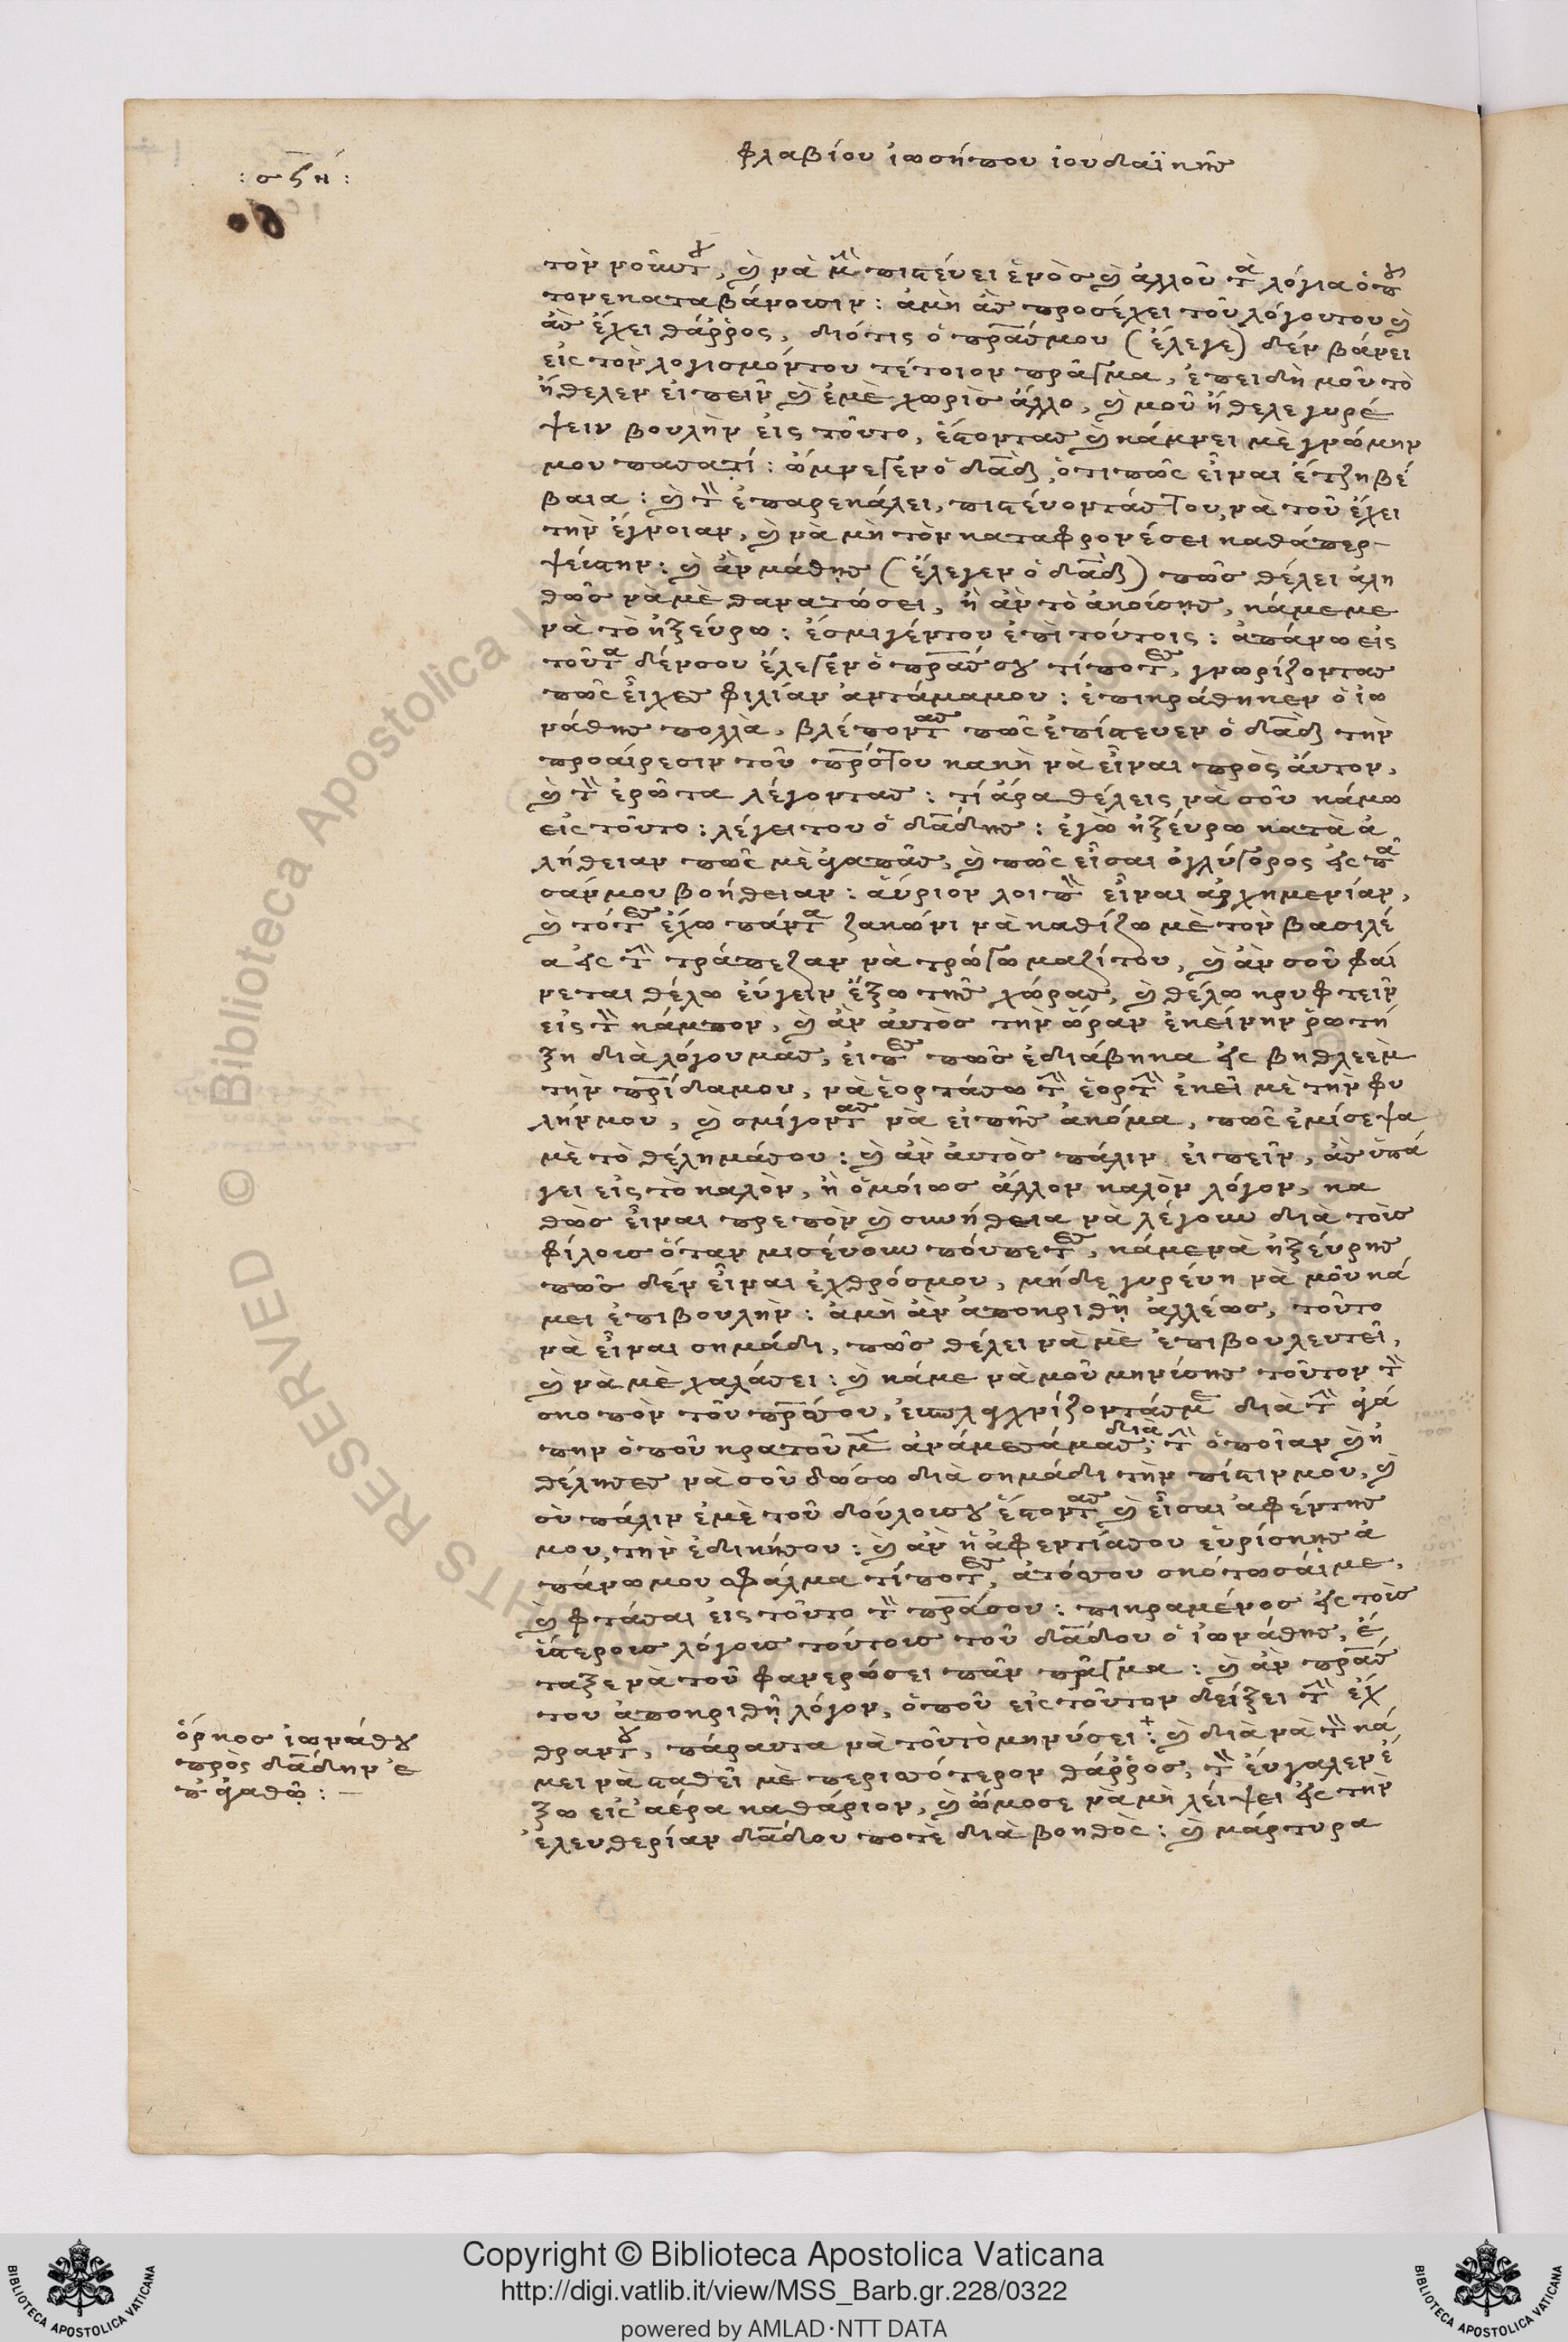 φλαβίου ἰωσήπου ἰουδαϊκῆς
τὸν νοῦν τ, καὶ νὰ μὴ πιστεύει ἑνὸς καὶ ἀλλοῦ τὰ λόγια ὁποῦ
τονε καταβάνουσιν: ἀμὴ ἂς προσέχει τοῦ λόγου του καὶ
ἂς ἔχει θάρρος, διότις ὁ πρας μου (ἔλεγε) δὲν βάνει
εἰς τὸν λογισμόν του τέτοιον πρᾶγμα, ἐπειδὴ μοῦ τὸ
ἤθελεν εἰπεῖν καὶ ἐμὲ χωρὶς ἄλλο, καὶ μοῦ ἤθελε γυρέ
ψειν βουλὴν εἰς τοῦτο, ἔστοντας καὶ κάμνει μὲ γνώμην
μου πασατί: ὤμνεγεν ὁ δαδ, ὅτι πῶς εἶναι ἔτζη βέ
βαια: καὶ τὸν ἐπαρεκάλει, πιστεύοντάς του, νὰ τοῦ ἔχει
τὴν ἔγνοιαν, καὶ νὰ μὴ τὸν καταφρονέσει καθάπερ
ψεύστην: καὶ ἂν μάθῃς (ἔλεγεν ὁ δαδ) πῶς θέλει ἀλη
θῶς νὰ μὲ θανατώσει, ἢ ἂν τὸ ἀκούσῃς, κάμε με
νὰ τὸ ἠξεύρω: ἔσμιγέν του ἐπὶ τούτοις: ἀπάνω εἰς
τοῦτα δέν σου ἔλεγεν ὁ πρας σου τίποτες, γνωρίζοντας
πῶς εἶχες φιλίαν ἀντάμα μου: ἐπικράθηκεν ὁ ἰω
νάθης πολλὰ, βλέποντας πῶς ἐπίστευεν ὁ δαδ τὴν
προαίρεσιν τοῦ πρός του κακὴ νὰ εἶναι πρὸς αὐτον,
καὶ τὸν ἐρῶτα λέγοντας: τί ἄρα θέλεις νὰ σοῦ κάμω
εἰς τοῦτο: λέγει του ὁ δαδης: ἐγὼ ἠξεύρω κατὰ ἀ
λήθειαν πῶς μὲ ἀγαπᾶς, καὶ πῶς εἶσαι ὀγλύγορος εἰς πᾶ
σάν μου βοήθειαν: αὔριον λοιπὸν εἶναι ἀρχημενίαν,
καὶ τότες ἔχω πάντα ζακώνι νὰ καθίζω μὲ τὸν βασιλέ
α εἰς τὴν τράπεζαν νὰ τρώγω μαζί του, καὶ ἂν σοῦ φαί
νεται θέλω εὔγειν ἔξω τῆς χώρας, καὶ θέλω κρυφτεῖν
εἰς τὸν κάμπον, καὶ ἂν αὐτὸς τὴν ὥραν ἐκείνην ῥωτή
ξη διὰ λόγου μας, εἰπὲς πῶς ἐδιάβηκα εἰς βηθλεὲμ
τὴν πρίδα μου, νὰ ἑορτάσω τὴν ἑορτὴν ἐκεῖ μὲ τὴν φυ
λήν μου, καὶ σμίγοντας νὰ εἰπῆς ἀκόμα, πῶς ἐμίσεψα
μὲ τὸ θέλημά σου: καὶ ἂν αὐτὸς πάλιν εἰπεῖν, ἂς ὑπά
γει εἰς τὸ καλὸν, ἢ ὁμοίως ἄλλον καλὸν λόγον, κα
θὼς εἶναι πρεπὸν καὶ συνήθεια νὰ λέγουν διὰ τοὺς
φίλους ὅταν μισεύουν πούπετες, κάμε νὰ ἠξεύρῃς
πῶς δέν εἶναι ἐχθρός μου, μήδε γυρεύη νὰ μοῦ κά
μει ἐπιβουλὴν: ἀμὴ ἂν ἀποκριθῆ ἀλλέως, τοῦτο
νὰ εἶναι σημάδι, πῶς θέλει νὰ μὲ ἐπιβουλευτεῖ,
καὶ νὰ μὲ χαλάσει: καὶ κάμε νὰ μοῦ μηνύσῃς τοῦτον τὸν
σκοπὸν τοῦ πρς σου, διὰ τὴν ἀγά
πην ὁποῦ κρατοῦμεν ἀνάμεσά μας, διὰ τὴν ὁποῖαν καὶ ἠ
θέλησες νὰ σοῦ δώσω διὰ σημάδι τὴν πίστιν μου, καὶ
σὺ πάλιν ἐμὲ τοῦ δούλου σου ἔστοντας καὶ εἶσαι ἀφέντης
μου, τὴν ἐδικήν σου: καὶ ἂν ἡ ἀφεντιά σου εὑρίσκῃς ἀ
πάνω μου σφάλμα τίποτες, ἀτός σου σκότωσαί με,
καὶ φτάσαι εἰς τοῦτο τὸν πρα σου: πικραμένος εἰς τοὺς
ὕστερους λόγους τούτους τοῦ δαδου ὁ ἰωνάθης, ἔ
ταξε νὰ τοῦ φανερώσει πᾶν πρᾶγμα: καὶ ἂν πρας
του ἀποκριθῆ λόγον, ὁποῦ εἰς τοῦτον δείξει τὴν ἔχ
θραν του, πάραυτα νὰ τοῦ τὸ μηνύσει: καὶ διὰ νὰ τὸν κά
μει νὰ σταθεῖ μὲ περισσότερον θάρρος, τὸν εὔγαλεν ἔ
ξω εἰς ἀέρα καθάριον, καὶ ὤμοσε νὰ μὴ λείψει εἰς τὴν
ἐλευθερίαν δαδου ποτὲ διὰ βοηθὸς: καὶ μάρτυρα
ὅρκος ἰωνάθου
πρὸς δαδην ε
π ἀγαθῷ: —